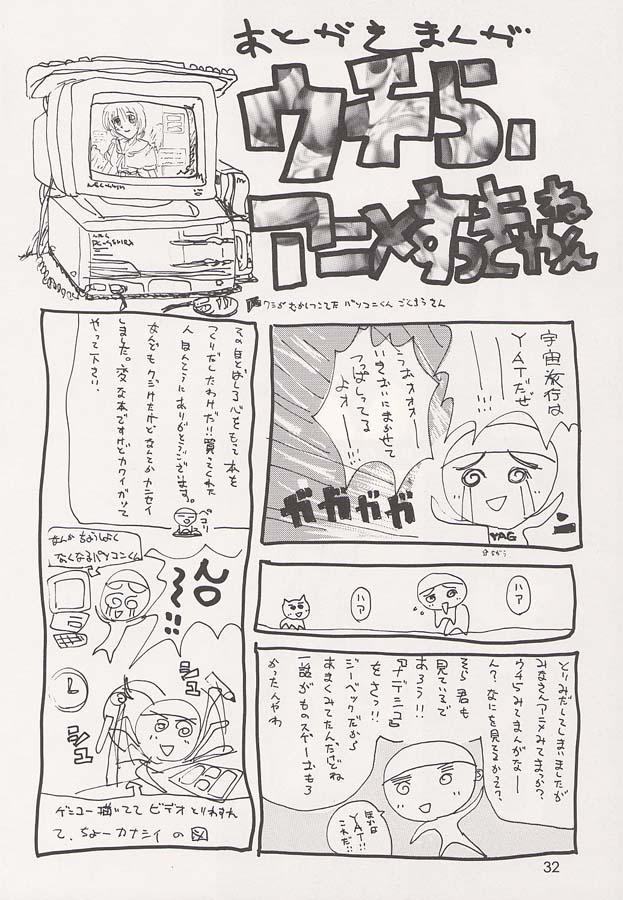 あとがきまんが
ウチら、
アニメすっきゃねん
宇宙旅行は
YATだぜ
———!!
うおォォォー
いきおいにまかせて
つっぱしってる
よォ———!!
ガガガガ
YAG
ハア
ハア
とりみだしてしまいましたが
みなさんアニメみてまっか?
ウチらみてまんがなー
ん?なにを見てるかって?
そら君も
見ているで
あろう!!
ナデシコ
をさっ!!
ジーベックだから
あまくみてたんだけどね
一話がものスゲーおもろ
かったんやわ
ほかは
YAT!
これだ!!
そのほとばしる心をもって本を
つくりだしたわけだ!!買ってくれた
人ほんとうにありがとうございます。
なんどもクジけたけどなんとかカンセイ
しました。変な本ですけどカワイがって
やって下さい。
ペコリ
なんかちょうしよく
なくなるパソコンくん
シュ
シュ
ゲンコー描いてて ビデオとりわすれ
て、ちょーカナシイ の図
32